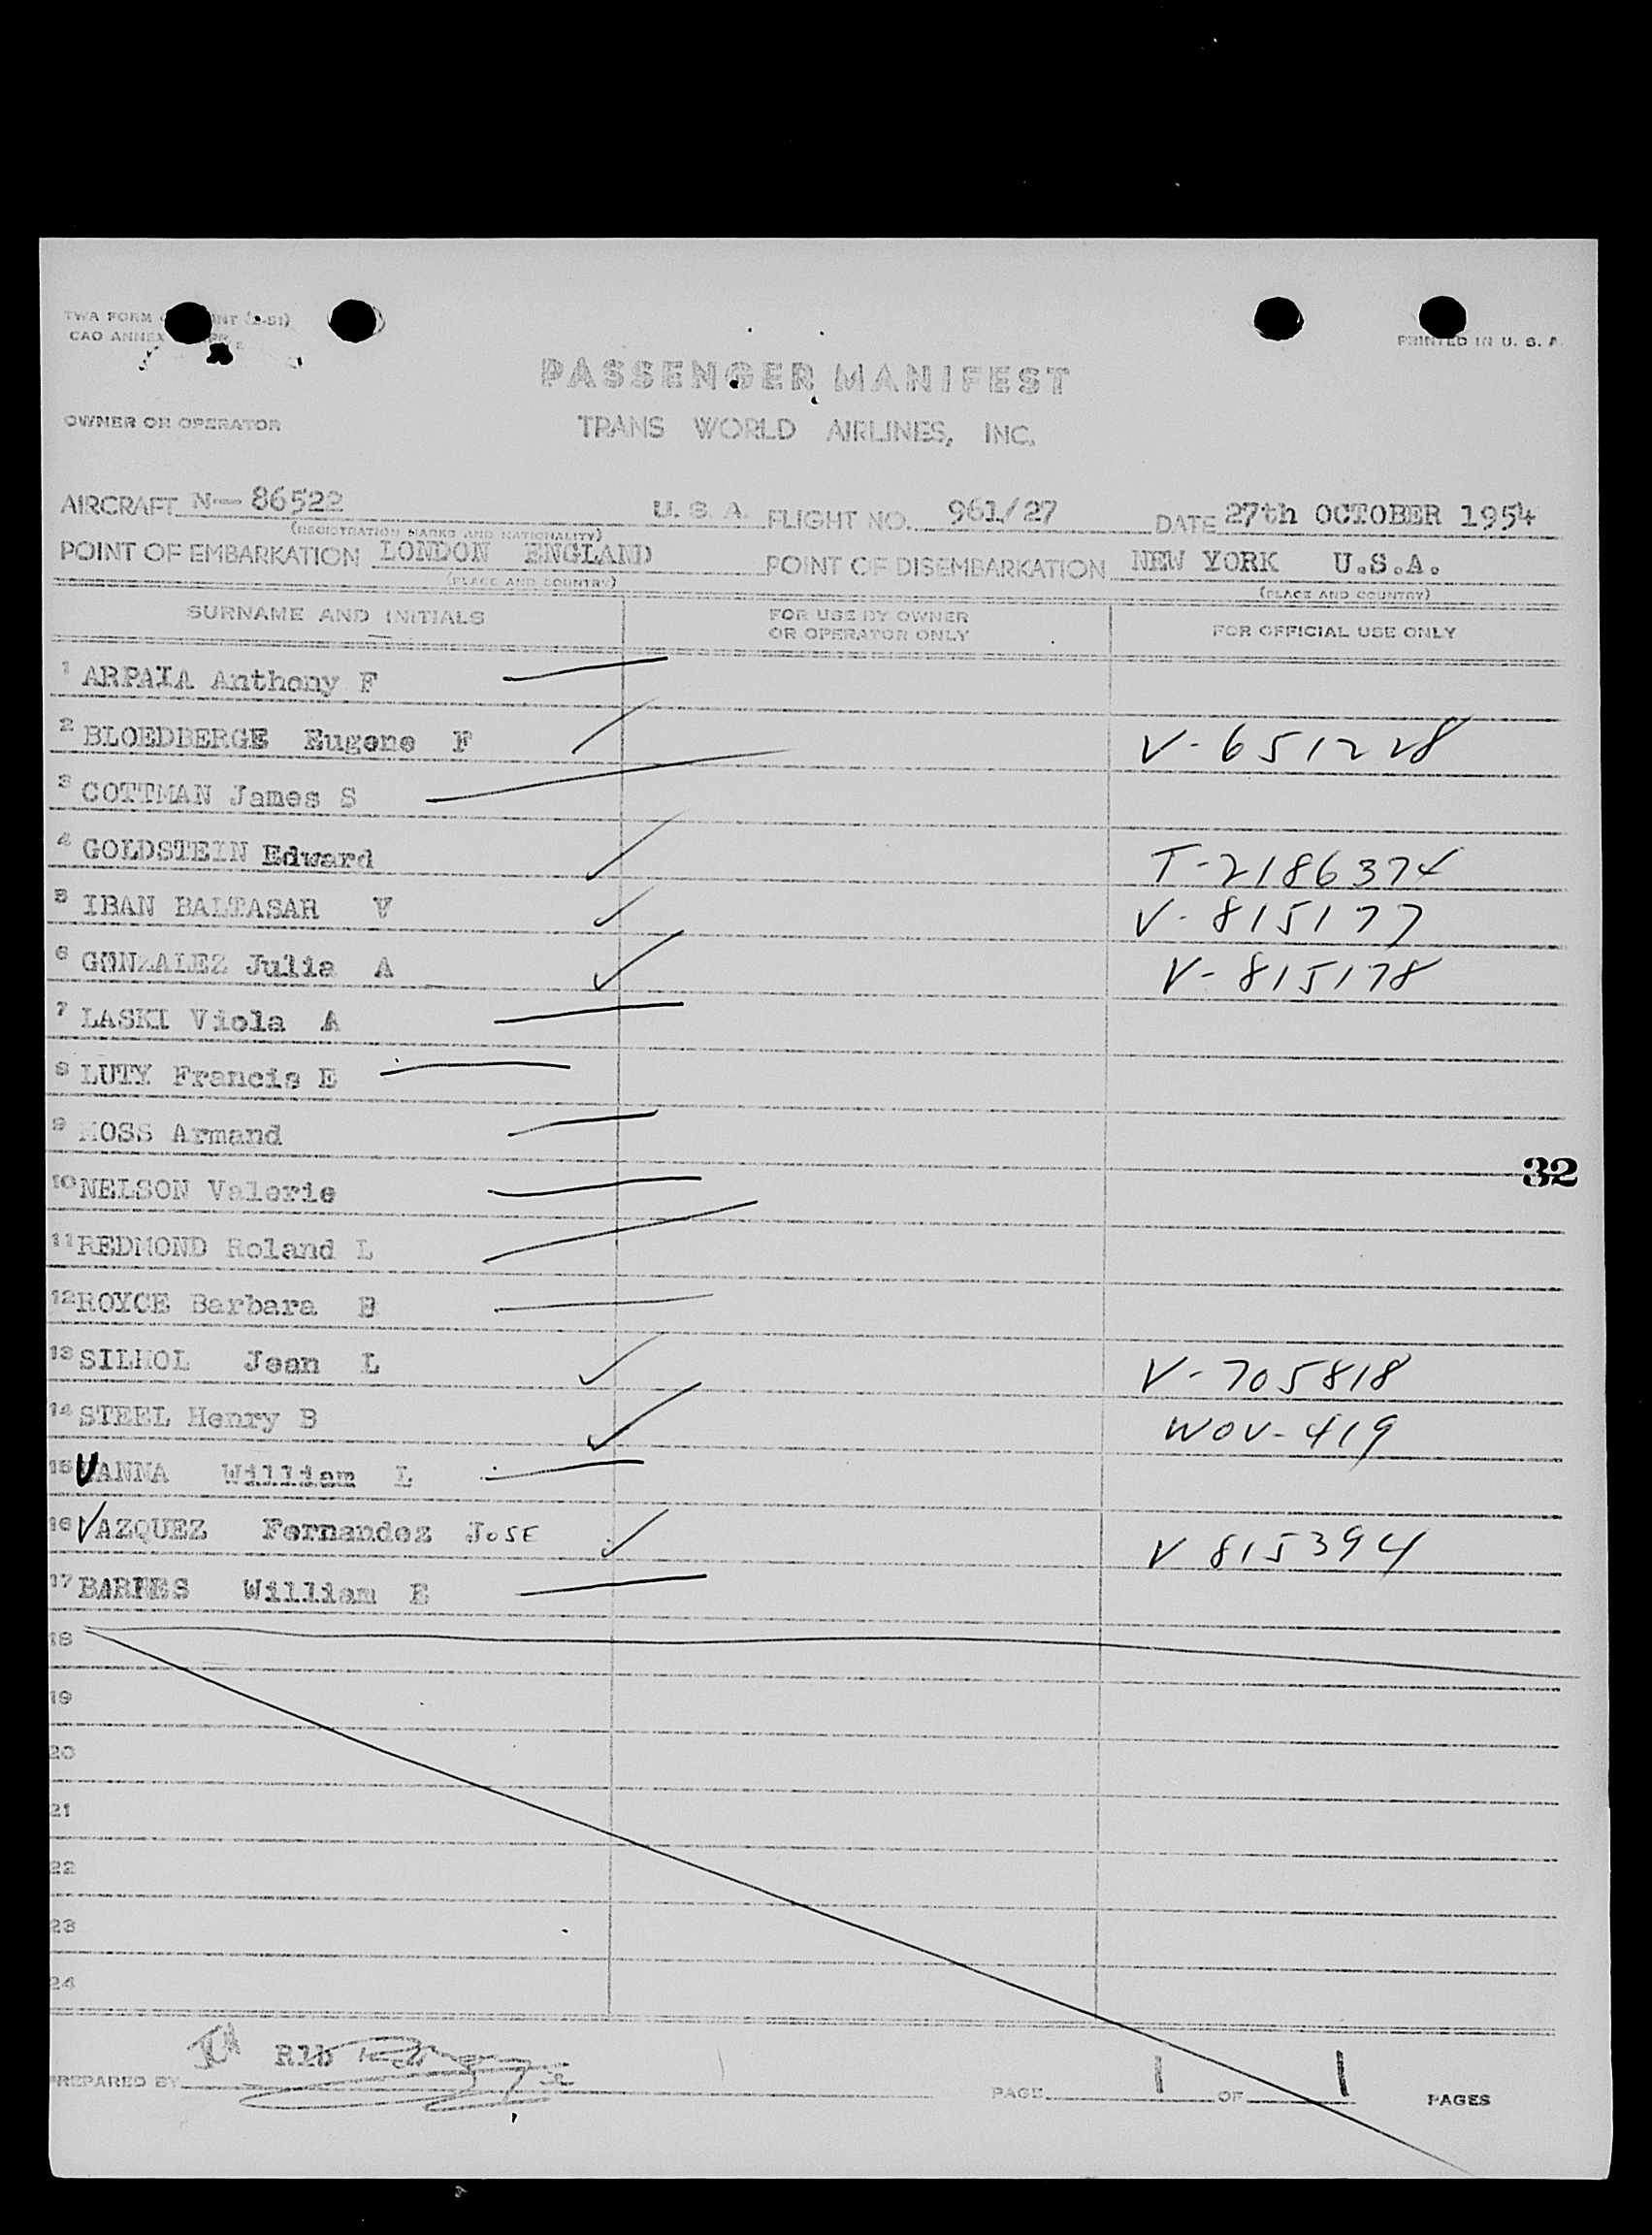 TWA FORM
CAO ANNEX
PRINTED IN U. S. A.
PASSENGER MANIFEST
OWNER OR OPERATOR
TRANS WORLD AIRLINES, INC.
AIRCRAFT N-86522 U. S. A. FLIGHT NO. 961/27 DATE 27th OCTOBER 1954
(REGISTRATION MARKS AND NATIONALITY)
POINT OF EMBARKATION LONDON ENGLAND POINT OF DISEMBARKATION NEW YORK U.S.A.
(PLACE AND COUNTRY) (PLACE AND COUNTRY)
SURNAME AND INITIALS FOR USE BY OWNER OR OPERATOR ONLY FOR OFFICIAL USE ONLY
1 ARPAIA Anthony F
2 BLOEDBERGE Eugene F V-651228
3 COTTMAN James S
4 GOLDSTEIN Edward T-2186374
5 IBAN BALTASAR V V-815177
6 GONZALEZ Julia A V-815178
7 LASKI Viola A
8 LUTY Francis E
9 MOSS Armand
32
10 NELSON Valerie
11 REDMOND Roland L
12 ROYCE Barbara B
13 SILHOL Jean L V-705818
14 STEEL Henry B WOV-419
15 VANNA William L
16 VAZQUEZ Fernandez JOSE V 815394
17 BARNES William E
18
19
20
21
22
23
24
PREPARED BY Rib PAGE 1 OF 1 PAGES